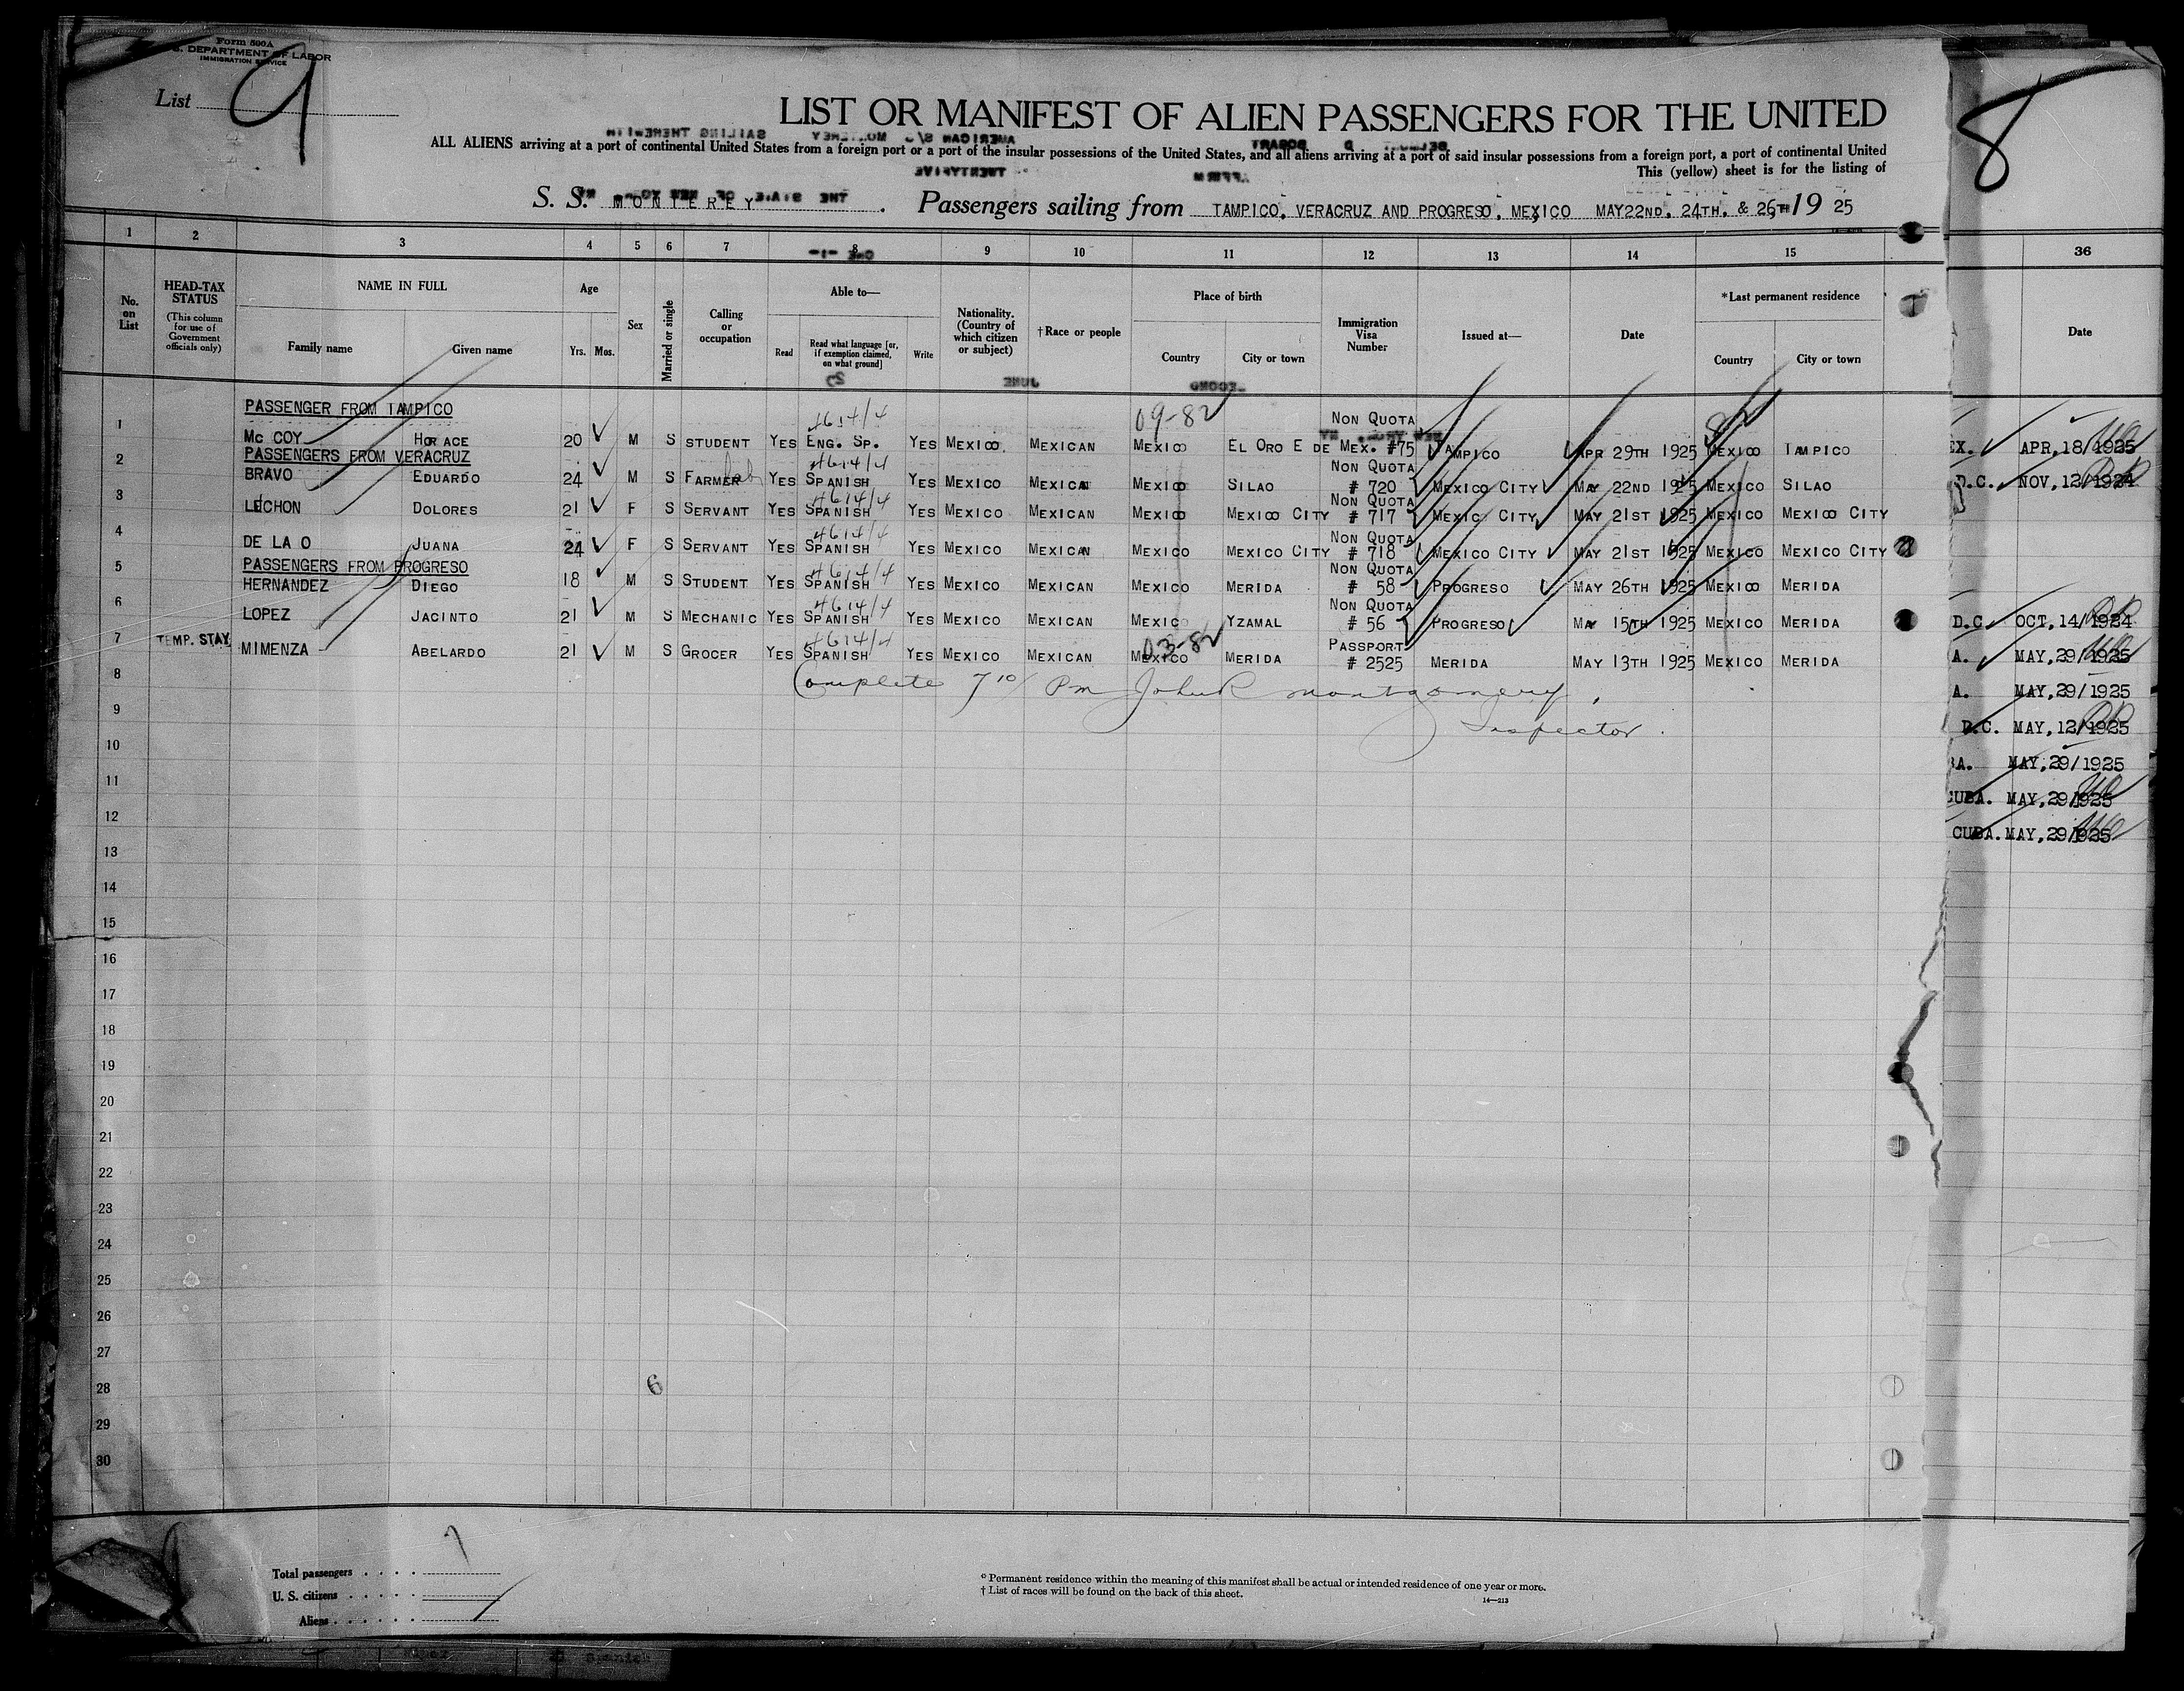 Form 500A
U.S. DEPARTMENT OF LABOR
IMMIGRATION SERVICE
List 9
8
LIST OR MANIFEST OF ALIEN PASSENGERS FOR THE UNITED
ALL ALIENS arriving at a port of continental United States from a foreign port or a port of the insular possessions of the United States, and all aliens arriving at a port of said insular possessions from a foreign port, a port of continental United
This (yellow) sheet is for the listing of
S. S. MONTEREY. Passengers sailing from TAMPICO, VERACRUZ AND PROGRESO, MEXICO MAY 22ND, 24TH, & 26TH 19 25
1 2 3 4 5 6 7 8 9 10 11 12 13 14 15 36
No. on List
HEAD-TAX STATUS
(This column for use of Government officials only)
NAME IN FULL
Family name
Given name
Age
Yrs. Mos.
Sex
Married or single
Calling or occupation
Able to—
Read
Read what language [or, if exemption claimed, on what ground]
Write
Nationality. (Country of which citizen or subject)
†Race or people
Place of birth
Country
City or town
Immigration Visa Number
Issued at—
Date
*Last permanent residence
Country
City or town
Date
PASSENGER FROM TAMPICO
4614/4 09-82 NON QUOTA 82
1 MC COY HORACE 20 M S STUDENT YES ENG. SP. YES MEXICO. MEXICAN MEXICO EL ORO E DE MEX. #75 TAMPICO APR 29TH 1925 MEXICO TAMPICO
PASSENGERS FROM VERACRUZ
4614/4 NON QUOTA
2 BRAVO EDUARDO 24 M S FARMER YES SPANISH YES MEXICO MEXICAN MEXICO SILAO # 720 MEXICO CITY MAY 22ND 1925 MEXICO SILAO
4614/4 NON QUOTA
3 LECHON DOLORES 21 F S SERVANT YES SPANISH YES MEXICO MEXICAN MEXICO MEXICO CITY # 717 MEXICO CITY MAY 21ST 1925 MEXICO MEXICO CITY
4614/4 NON QUOTA
4 DE LA O JUANA 24 F S SERVANT YES SPANISH YES MEXICO MEXICAN MEXICO MEXICO CITY # 718 MEXICO CITY MAY 21ST 1925 MEXICO MEXICO CITY
PASSENGERS FROM PROGRESO
4614/4 NON QUOTA
5 HERNANDEZ DIEGO 18 M S STUDENT YES SPANISH YES MEXICO MEXICAN MEXICO MERIDA # 58 PROGRESO MAY 26TH 1925 MEXICO MERIDA
4614/4 NON QUOTA
6 LOPEZ JACINTO 21 M S MECHANIC YES SPANISH YES MEXICO MEXICAN MEXICO YZAMAL # 56 PROGRESO MAY 15TH 1925 MEXICO MERIDA
4614/4 03-82 PASSPORT
7 TEMP. STAY MIMENZA ABELARDO 21 M S GROCER YES SPANISH YES MEXICO MEXICAN MEXICO MERIDA # 2525 MERIDA MAY 13TH 1925 MEXICO MERIDA
8 Complete 7 10/ Pm John R Montgomery,
9 Inspector.
10
11
12
13
14
15
16
17
18
19
20
21
22
23
24
25
26
27
28 6
29
30
EX. APR, 18/1925
D.C. NOV, 12/1924
D.C. OCT, 14/1924
A. MAY, 29/1925
A. MAY, 29/1925
D.C. MAY, 12/1925
BA. MAY, 29/1925
CUBA. MAY, 29/1925
CUBA. MAY, 29/1925
Total passengers . . . . 7
U. S. citizens . . . . .
Aliens . . . . . .
* Permanent residence within the meaning of this manifest shall be actual or intended residence of one year or more.
† List of races will be found on the back of this sheet.
14—213